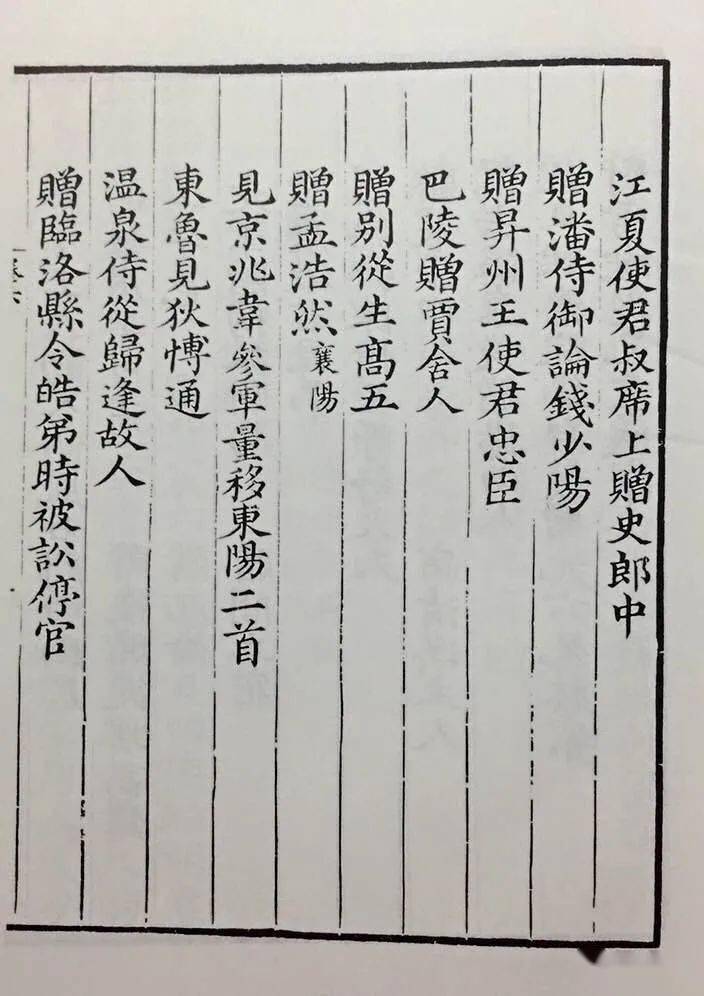 江夏使君叔席上贈史郎中
贈潘侍御論錢少陽
贈昇州王使君忠臣
巴陵贈賈舍人
贈別從生高五
贈孟浩然襄陽
見京兆韋參軍量移東陽二首
東魯見狄博通
温泉侍從歸逢故人
贈臨洛縣令皓弟時被訟停官